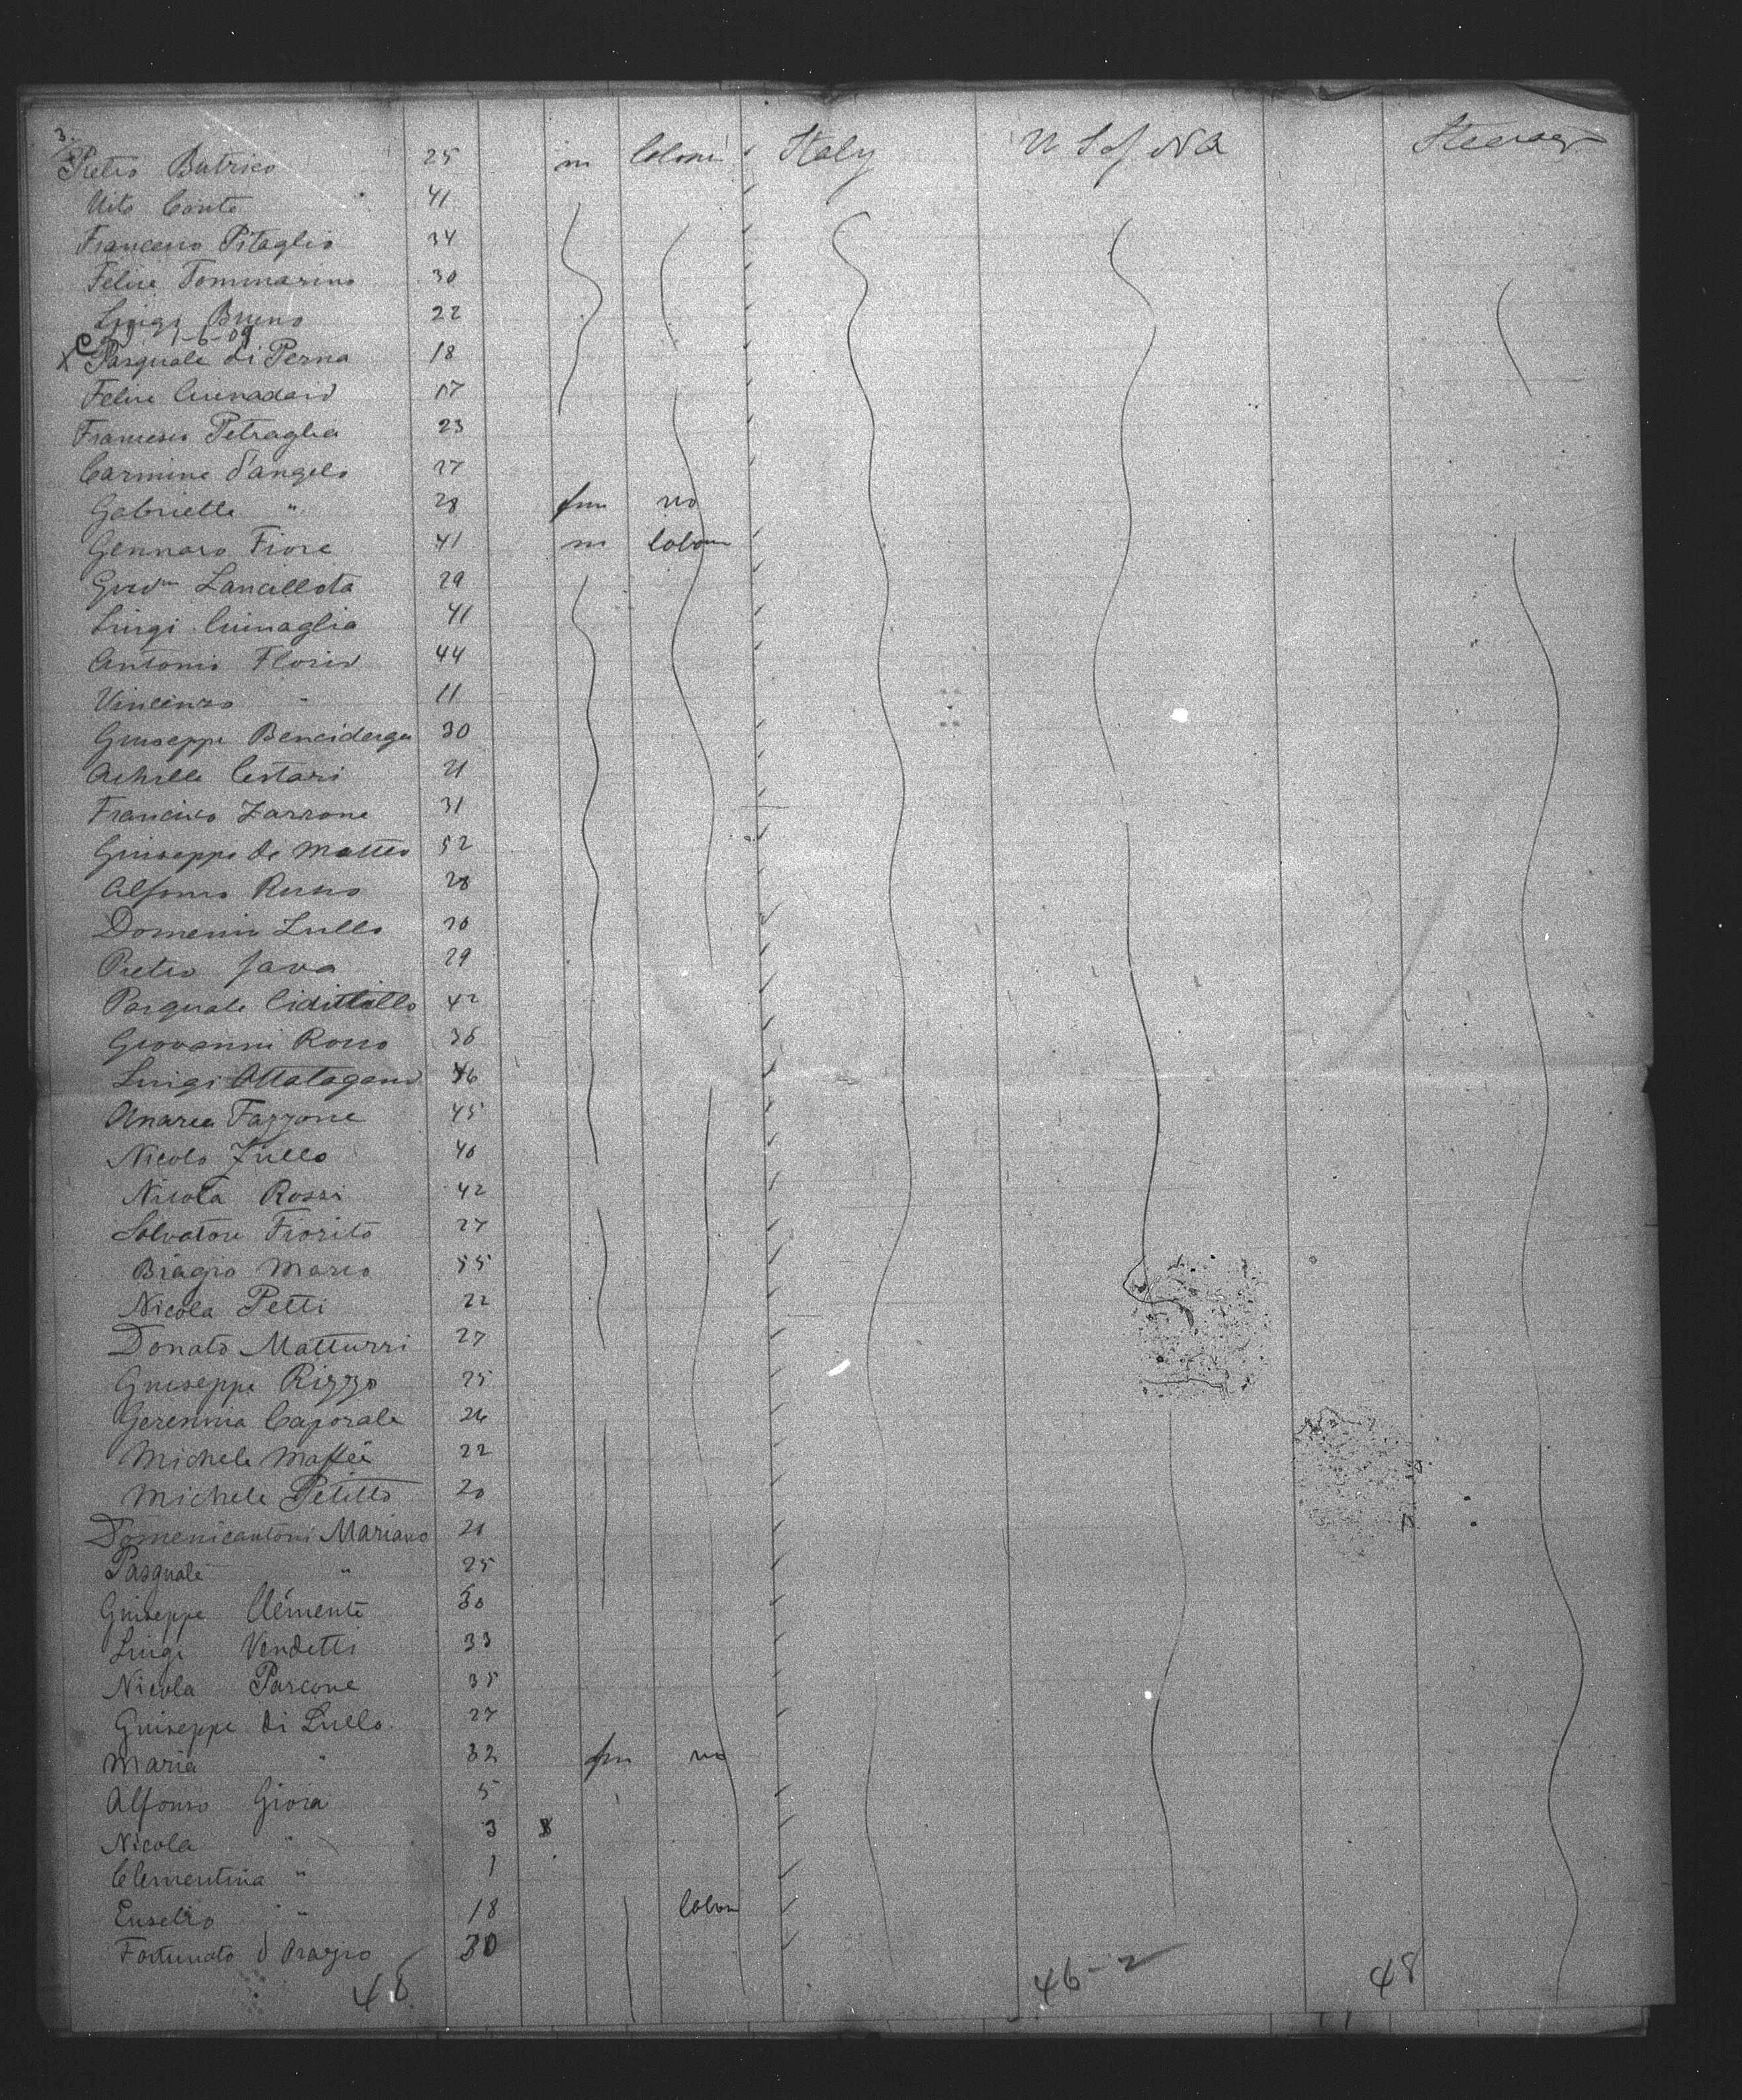 3.
Pietro Butrico 25 m labour Italy U S of NA Steerage
Vito Conte 41
Francesco Pitaglio 34
Felice Tommarino 30
Luigi Bruno 22
1-6-09
X Pasquale di Perna 18
Felice 17
Francesco Petraglia 23
Carmine d'angelo 27
Gabrielle " 28 fm no
Gennaro Fiore 41 m labour
Giovni Lancellota 29
Luigi 41
Antonio Florio 44
Vincenzo " 11
Giuseppe 30
Achille Cestari 21
Francisco Zarrone 31
Giuseppe de Matteo 52
Alfonso Russo 28
Domenico Lullo 20
Pietro Java 29
Pasquale 42
Giovanni Rosso 36
Luigi 46
Andrea Fazzone 45
Nicolo Zullo 40
Nicola Rossi 42
Salvatore Fiorito 27
Biagio Marco 55
Nicola Petti 22
Donato Matturri 27
Giuseppe Rizzo 25
Geremia Caporale 26
Michele Maffei 22
Michele Petitto 20
Domenicantoni Mariano 20
Pasquale " 25
Giuseppe Clemente 30
Luigi Vendetti 33
Nicola Pascone 35
Giuseppe di Lullo 27
Maria " 32 fm no
Alfonso Gioia 5
Nicola " 3
Clementina " 1
Eusebio " 18 labour
Fortunato d'Orazio 30
48 46-2 48